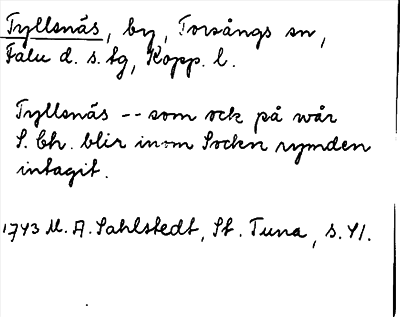 Tyllsnäs, by, Torsångs sn,
Falu d. s. tg, Kopp. l.
Tyllsnäs -- som ock på wår
S. Ch. blir inom Sockn rymden
intagit.
1743 M. A. Sahlstedt, St. Tuna, s. 41.